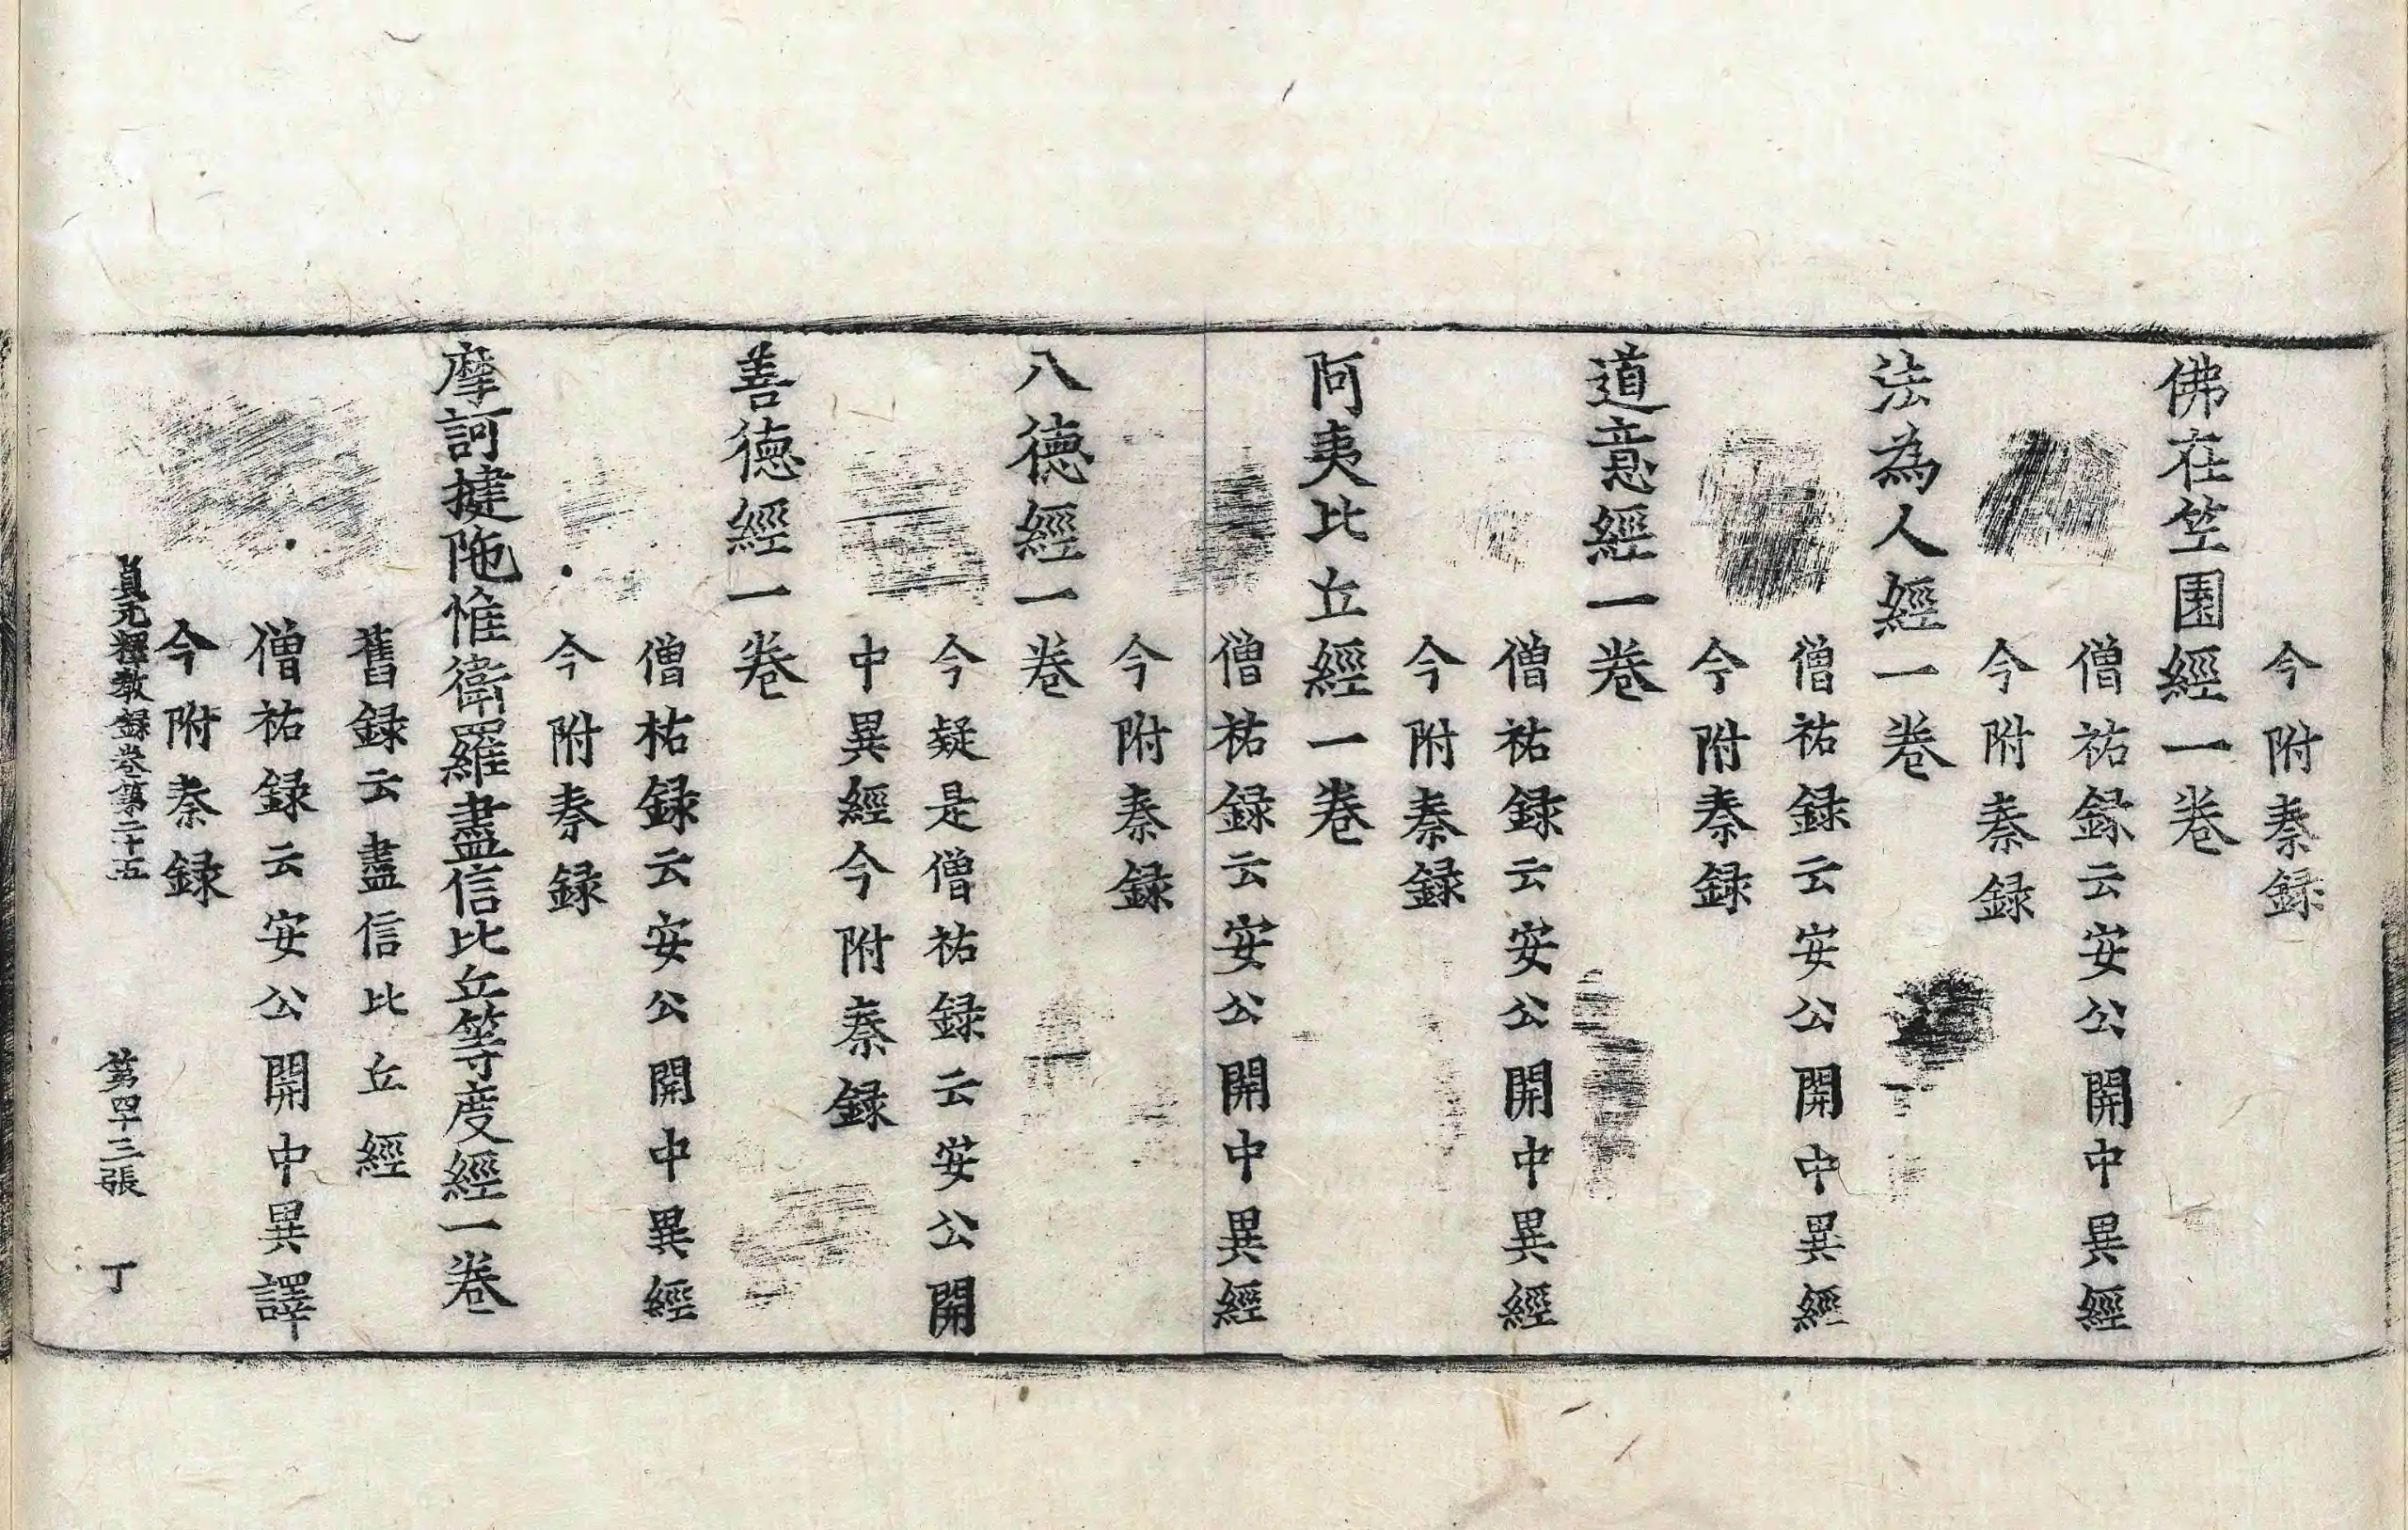 今附秦録
佛在竺園經一卷
僧祐録云安公開中異經
今附秦録
法為人經一卷
僧祐録云安公開中異經
今附秦録
道意經一卷
僧祐録云安公開中異經
今附秦録
阿夷比丘經一卷
僧祐録云安公開中異經
今附秦録
八德經一卷
今疑是僧祐録云安公開
中異經今附秦録
善德經一卷
僧祐録云安公開中異經
今附秦録
摩訶揵陁惟衛羅盡信比丘等度經一卷
舊録云盡信比丘經
僧祐録云安公開中異譯
今附秦録
貞元釋教録卷第二十五 第四十三張 丁